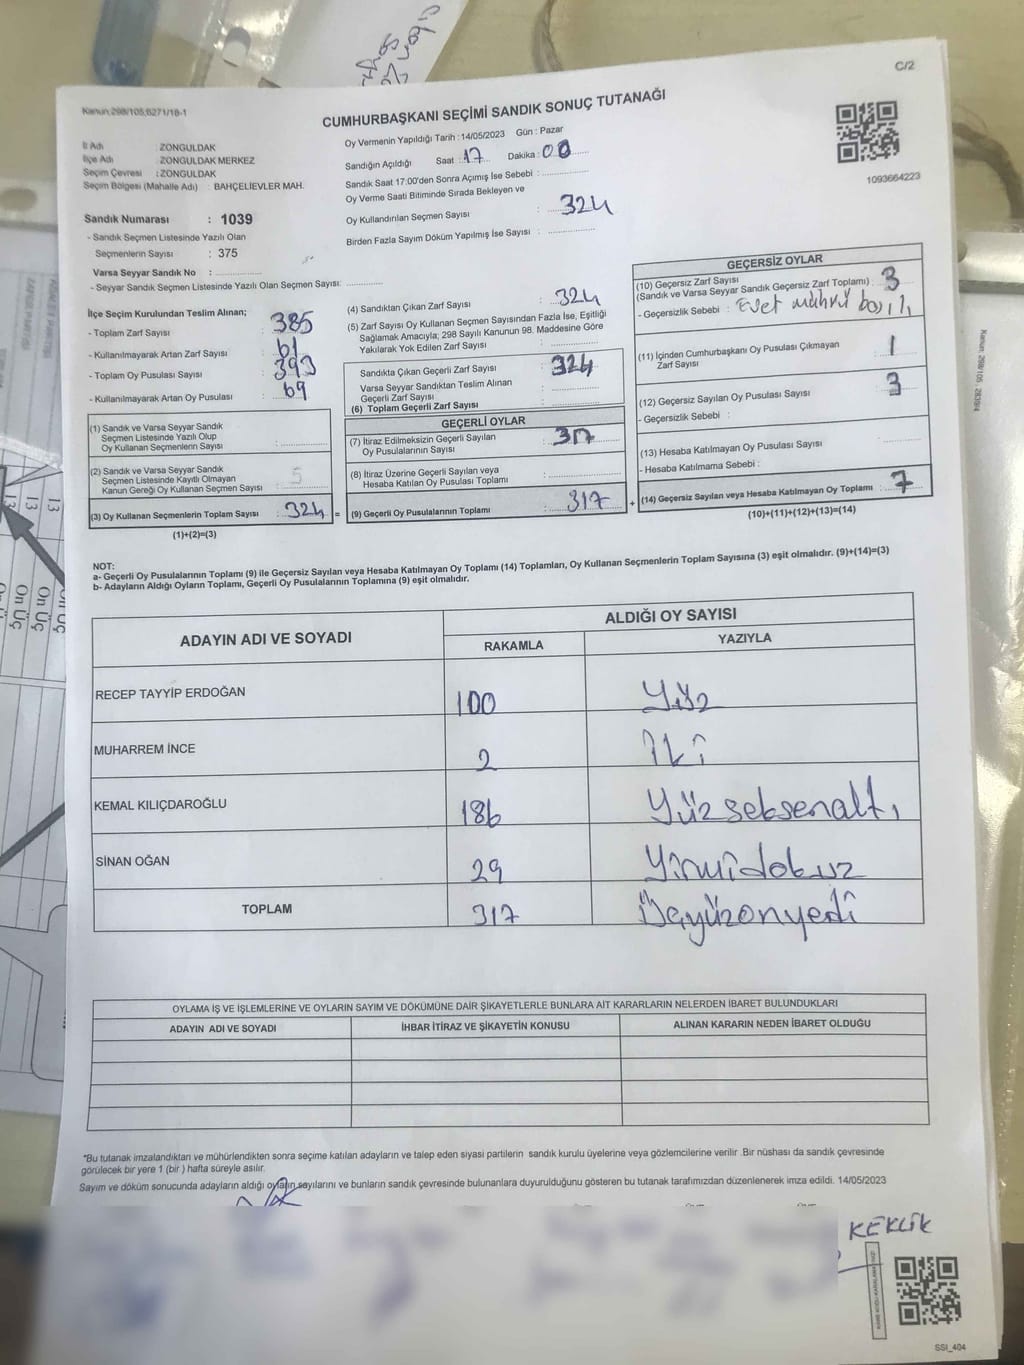 C/2
Kanun:298/105,6271/18-1
CUMHURBAŞKANI SEÇİMİ SANDIK SONUÇ TUTANAĞI
1093664223
İl Adı : ZONGULDAK
İlçe Adı : ZONGULDAK MERKEZ
Seçim Çevresi : ZONGULDAK
Seçim Bölgesi (Mahalle Adı) : BAHÇELİEVLER MAH.
Sandık Numarası : 1039
- Sandık Seçmen Listesinde Yazılı Olan
Seçmenlerin Sayısı : 375
Varsa Seyyar Sandık No :
- Seyyar Sandık Seçmen Listesinde Yazılı Olan Seçmen Sayısı:
Oy Vermenin Yapıldığı Tarih : 14/05/2023 Gün : Pazar
Sandığın Açıldığı Saat : 17 Dakika : 00
Sandık Saat 17:00'den Sonra Açımış İse Sebebi :
Oy Verme Saati Bitiminde Sırada Bekleyen ve
Oy Kullandırılan Seçmen Sayısı : 324
Birden Fazla Sayım Döküm Yapılmış İse Sayısı :
İlçe Seçim Kurulundan Teslim Alınan;
- Toplam Zarf Sayısı : 385
- Kullanılmayarak Artan Zarf Sayısı : 61
- Toplam Oy Pusulası Sayısı : 393
- Kullanılmayarak Artan Oy Pusulası : 69
(1) Sandık ve Varsa Seyyar Sandık
Seçmen Listesinde Yazılı Olup
Oy Kullanan Seçmenlerin Sayısı :
(2) Sandık ve Varsa Seyyar Sandık
Seçmen Listesinde Kayıtlı Olmayan
Kanun Gereği Oy Kullanan Seçmen Sayısı : 5
(3) Oy Kullanan Seçmenlerin Toplam Sayısı : 324 =
(1)+(2)=(3)
(4) Sandıktan Çıkan Zarf Sayısı : 324
(5) Zarf Sayısı Oy Kullanan Seçmen Sayısından Fazla İse, Eşitliği
Sağlamak Amacıyla; 298 Sayılı Kanunun 98. Maddesine Göre
Yakılarak Yok Edilen Zarf Sayısı :
Sandıkta Çıkan Geçerli Zarf Sayısı : 324
Varsa Seyyar Sandıktan Teslim Alınan
Geçerli Zarf Sayısı :
(6) Toplam Geçerli Zarf Sayısı :
GEÇERLİ OYLAR
(7) İtiraz Edilmeksizin Geçerli Sayılan
Oy Pusulalarının Sayısı : 317
(8) İtiraz Üzerine Geçerli Sayılan veya
Hesaba Katılan Oy Pusulası Toplamı :
(9) Geçerli Oy Pusulalarının Toplamı : 317 +
GEÇERSİZ OYLAR
(10) Geçersiz Zarf Sayısı
(Sandık ve Varsa Seyyar Sandık Geçersiz Zarf Toplamı) : 3
- Geçersizlik Sebebi : Evet mührü basılı
(11) İçinden Cumhurbaşkanı Oy Pusulası Çıkmayan
Zarf Sayısı : 1
(12) Geçersiz Sayılan Oy Pusulası Sayısı : 3
- Geçersizlik Sebebi :
(13) Hesaba Katılmayan Oy Pusulası Sayısı
- Hesaba Katılmama Sebebi :
(14) Geçersiz Sayılan veya Hesaba Katılmayan Oy Toplamı : 7
(10)+(11)+(12)+(13)=(14)
NOT:
a- Geçerli Oy Pusulalarının Toplamı (9) ile Geçersiz Sayılan veya Hesaba Katılmayan Oy Toplamı (14) Toplamları, Oy Kullanan Seçmenlerin Toplam Sayısına (3) eşit olmalıdır. (9)+(14)=(3)
b- Adayların Aldığı Oyların Toplamı, Geçerli Oy Pusulalarının Toplamına (9) eşit olmalıdır.
ADAYIN ADI VE SOYADI
ALDIĞI OY SAYISI
RAKAMLA YAZIYLA
RECEP TAYYİP ERDOĞAN 100 Yüz
MUHARREM İNCE 2 İki
KEMAL KILIÇDAROĞLU 186 Yüzseksenaltı
SİNAN OĞAN 29 Yirmidokuz
TOPLAM 317 Üçyüzonyedi
OYLAMA İŞ VE İŞLEMLERİNE VE OYLARIN SAYIM VE DÖKÜMÜNE DAİR ŞİKAYETLERLE BUNLARA AİT KARARLARIN NELERDEN İBARET BULUNDUKLARI
ADAYIN ADI VE SOYADI İHBAR İTİRAZ VE ŞİKAYETİN KONUSU ALINAN KARARIN NEDEN İBARET OLDUĞU
*Bu tutanak imzalandıktan ve mühürlendikten sonra seçime katılan adayların ve talep eden siyasi partilerin sandık kurulu üyelerine veya gözlemcilerine verilir .Bir nüshası da sandık çevresinde
görülecek bir yere 1 (bir ) hafta süreyle asılır.
Sayım ve döküm sonucunda adayların aldığı oyların sayılarını ve bunların sandık çevresinde bulunanlara duyurulduğunu gösteren bu tutanak tarafımızdan düzenlenerek imza edildi. 14/05/2023
KEKLİK
SSI_404
13
13
13
On Üç
On Üç
On Üç